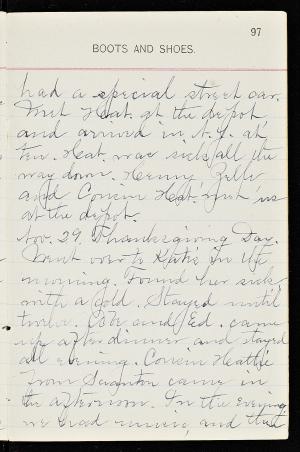 97
BOOTS AND SHOES.
had a special street car.
Met Hat. at the depot
and arrived in N.Y. at
ten. Hat. was sick all the
way down. Henry, Belle
and Cousin Hat. met us
at the depot.
Nov. 29. Thanksgiving Day.
Went over to Katie in the
morning. Found her sick
with a cold. Stayed until
twelve. and Ed. came
up after dinner and stayed
all evening. Cousin Hattie
from Scranton came in
the afternoon. In the evening
we had music, and that